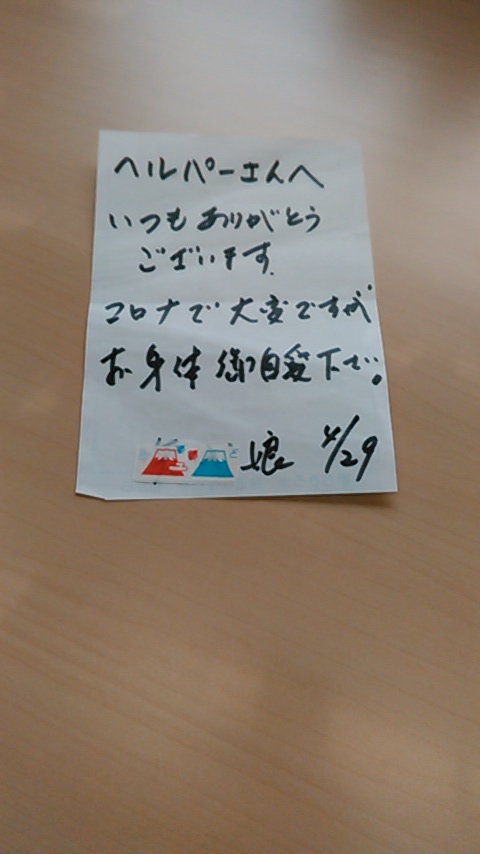 ヘルパーさんへ
いつもありがとう
ございます.
コロナで大変ですが
お身体御自愛下さい。
娘 4/29